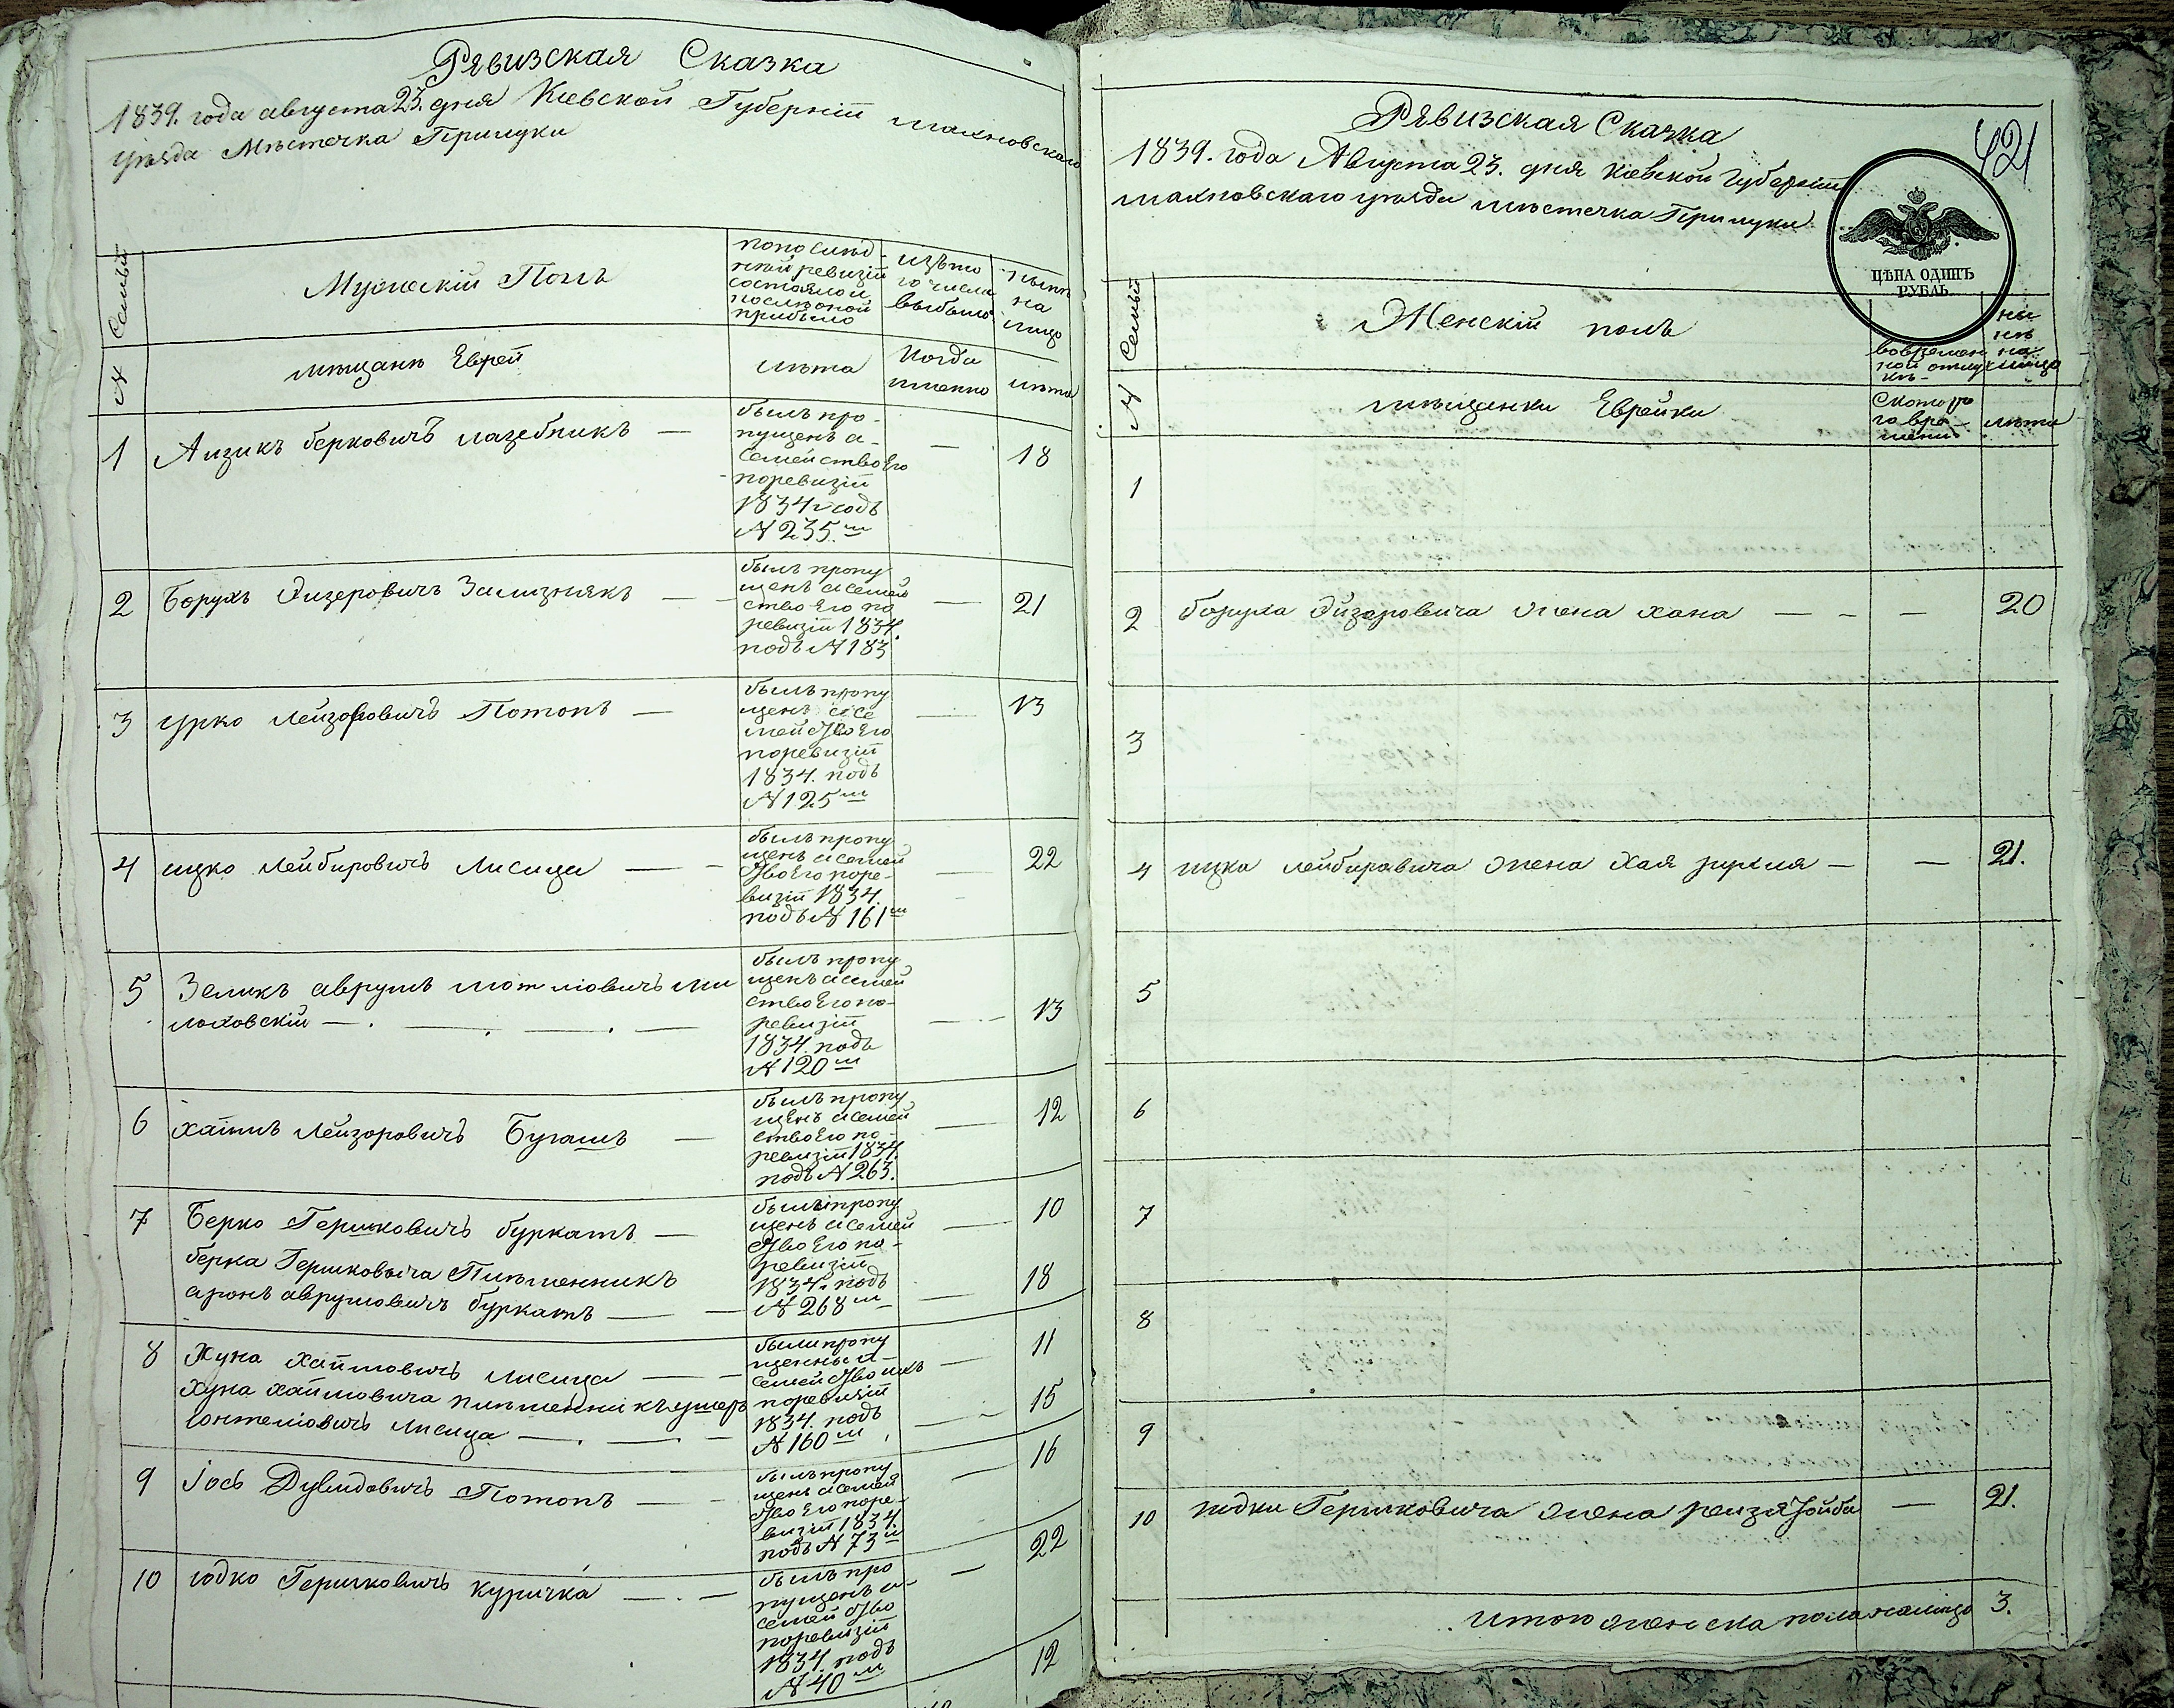 Ревизская Сказка
1839. года августа 23. дня Киевской Губерніи Махновскаго
уѣзда Мѣстечка Прилуки
Семьи
Мужескій Полъ
по послѣд-
ней ревизіи
состояло и
послѣ оной
прибыло
изъ то
го числа
выбыло
нынѣ
на
лицо
№
мѣщане Евреи
лѣта
когда
именно
лѣта
1 Аизикъ берковичъ лазебникъ —
былъ про-
пущенъ а-
семейство Его
поревизіи
1834 годъ
№ 235.
— 18
2 Борухъ Эизеровичъ Зализнякъ —
былъ пропу
щенъ а семей
ство Его по
ревизіи 1834.
подъ № 183
— 21
3 урко лейзоровичъ Потопъ —
былъ пропу
щенъ а се
мейство Его
поревизіи
1834. подъ
№ 125
— 13
4 ицко Лейбировичъ Лисица —
былъ пропу
щенъ а семей
ство Его поре-
визіи 1834.
подъ № 161
— 22
5 Зеликъ аврумъ мотліовичъ ми
лоховскій —
былъ пропу
щенъ а семей
ство Его по-
ревизіи
1834 подъ
№ 120
— 13
6 хаимъ лейзоровичъ Бугашъ —
былъ пропу
щенъ а семей
ство Его по-
ревизіи 1834.
подъ № 263.
— 12
7 Берко Гершковичъ буркатъ —
берка Гершковича Племенникъ
аронъ аврумовичъ буркатъ —
былъ пропу
щенъ а семей
ство Его по-
ревизіи
1834. подъ
№ 268
— 10
— 18
8 Хуна хаимовичъ лисица —
хуна хаимовича племенникъ ушеръ
іонтеліовичъ лисица —
были пропу
щенны а-
семейство ихъ
поревизіи
1834. подъ
№ 160
— 11
— 15
9 іось Дувидовичъ Потопъ —
былъ пропу
щенъ а семей
ство Его поре-
визіи 1834.
подъ № 73
— 16
10 юдко Гершковичъ куричка —
былъ про
пущенъ а-
семейство
поревизіи
1834. подъ
№ 40
— 22
12
421
Ревизская Сказка
1839. года Августа 23. дня Киевской Губерніи
махновскаго уѣзда мѣстечка Прилуки
ЦѢНА ОДИНЪ
РУБЛЬ.
Семьи
Женскій полъ
во времен
ной отлуч
кѣ-
ны
нѣ
на
лицо
№
мѣщанки Еврейки
Скотора
го вре-
мени
лѣта
1
2 боруха Эйзеровича жена хана — — — 20
3
4 ицка лейбировича жена Хая рухля — — 21.
5
6
7
8
9
10 юдки Гершковича жена реизя Тойба — 21.
Итого женска пола налицо 3.